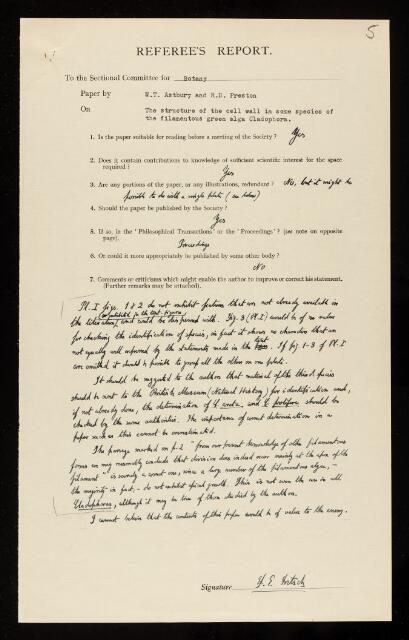 5
REFEREE'S REPORT.
To the Sectional Committee for Botany
Paper by W.T. Astbury and R.D. Preston
On The structure of the cell wall in some species of
the filamentous green alga Cladophora.
1. Is the paper suitable for reading before a meeting of the Society? Yes
2. Does it contain contributions to knowledge of sufficient scientific interest for the space
required? Yes
3. Are any portions of the paper, or any illustrations, redundant? No, but it might be
possible to do with a single plate (see below)
4. Should the paper be published by the Society?
Yes
5. If so, in the 'Philosophical Transactions' or the 'Proceedings'? (see note on opposite
page).
Proceedings
6. Or could it more appropriately be published by some other body?
No
7. Comments or criticisms which might enable the author to improve or correct his statement.
(Further remarks may be attached).
Pl. I figs. 1 & 2 do not exhibit features that are not already available in
the literature, and could be dispensed with. Fig. 3 (Pl. I) would be of no value
for checking the identification of species, in fact it shows no characters that are
not equally well informed by the statements made in the text. If figs 1-3 of Pl. I
are omitted it should be possible to group all the others on one plate.
It should be suggested to the authors that material of the third species
should be sent to the British Museum (Natural History) for identification and,
if not already done, the determination of C. and C. prolifera should be
checked by the same authorities. The importance of correct determination in a
paper such as this cannot be overestimated.
The passage marked on p. 2 "from our present knowledge of other filamentous
forms we may reasonably conclude that division does indeed occur mainly at the apex of the
filament" is a one, since a large number of the filamentous algae, -
the majority in fact, - do not exhibit apical growth. This is not even the case in all
Cladophoras, although it may be true of those studied by the authors.
I cannot believe that the contents of this paper would be of value to the enemy.
Signature F. E. Fritsch